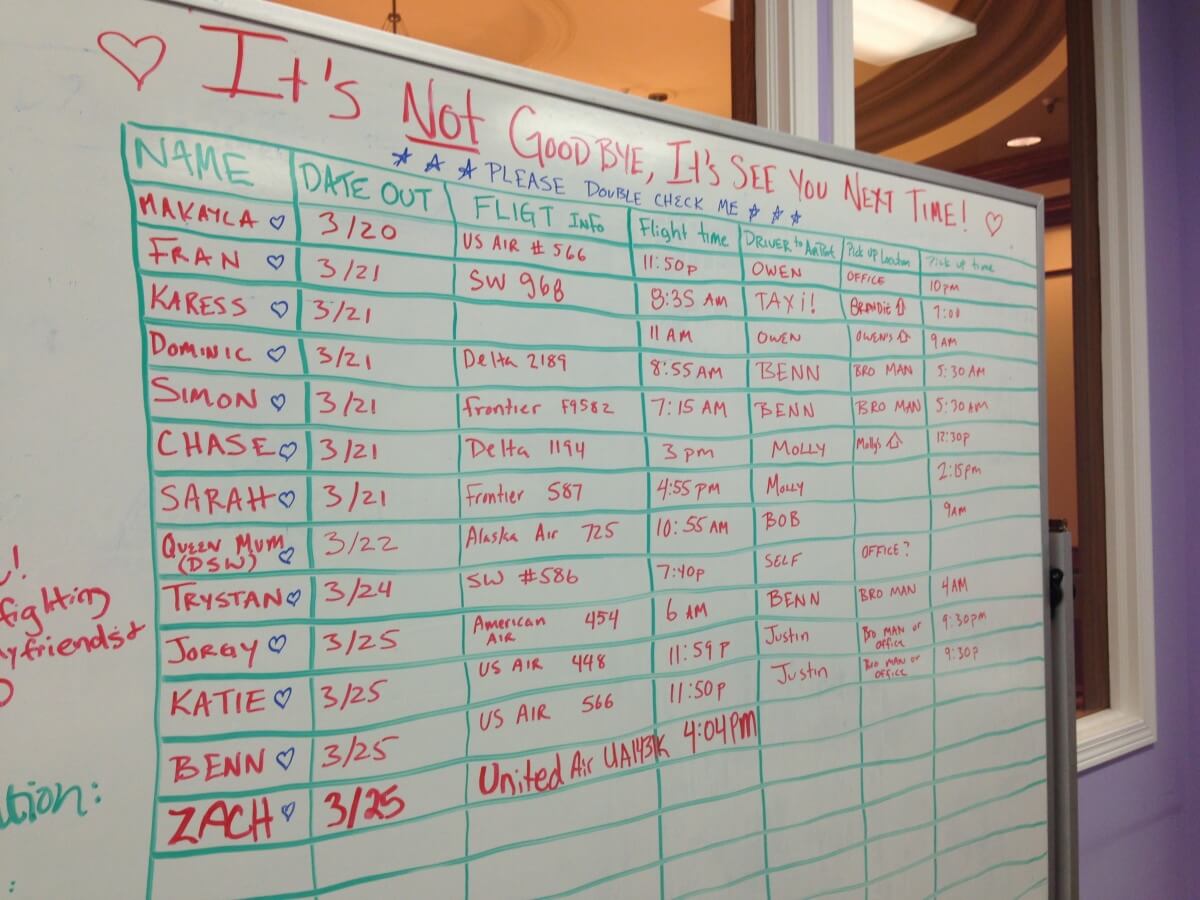 It's Not GOODBYE, It's SEE YOU NEXT TIME!
PLEASE DOUBLE CHECK ME
NAME DATE OUT FLIGT INFO Flight time DRIVER to AirPort Pick up Location Pick up time
MAKAYLA 3/20 US AIR # 566 11:50p OWEN OFFICE 10pm
FRAN 3/21 SW 968 8:35 AM TAXi! BRANDIE 7:00
KARESS 3/21 11 AM OWEN OWEN'S 9 AM
DOMINIC 3/21 Delta 2189 8:55 AM BENN BRO MAN 5:30 AM
SIMON 3/21 frontier F9582 7:15 AM BENN BRO MAN 5:30 AM
CHASE 3/21 Delta 1194 3 pm MOLLY Molly's 12:30p
SARAH 3/21 Frontier 587 4:55 pm Molly 2:15pm
QUEEN MUM 3/22 Alaska Air 725 10:55 AM BOB 9AM
(DSW)
TRYSTAN 3/24 SW #586 7:40p SELF OFFICE?
JORGY 3/25 American 454 6 AM BENN BRO MAN 4AM
AIR
KATIE 3/25 US AIR 448 11:59 P Justin BRO MAN or 9:30pm
office
BENN 3/25 US AIR 566 11:50p Justin BRO MAN or 9:30p
OFFICE
ZACH 3/25 United Air UA1431K 4:04PM
!
fighting
friends &
ution:
: